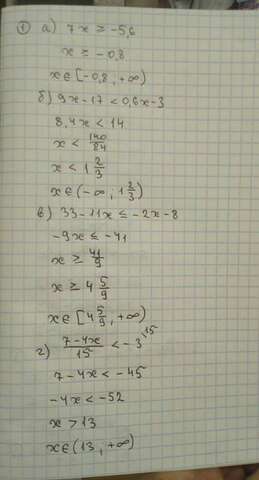 ① а) 7x ≥ -5,6
x ≥ -0,8
x∈[-0,8, +∞)
б) 9x-17 < 0,6x-3
8,4x < 14
x < 140/84
x < 1 2/3
x∈(-∞, 1 2/3)
в) 33-11x ≤ -2x-8
-9x ≤ -41
x ≥ 41/9
x ≥ 4 5/9
x∈[4 5/9, +∞)
г) (7-4x)/15 < -3 \15
7-4x < -45
-4x < -52
x > 13
x∈(13, +∞)